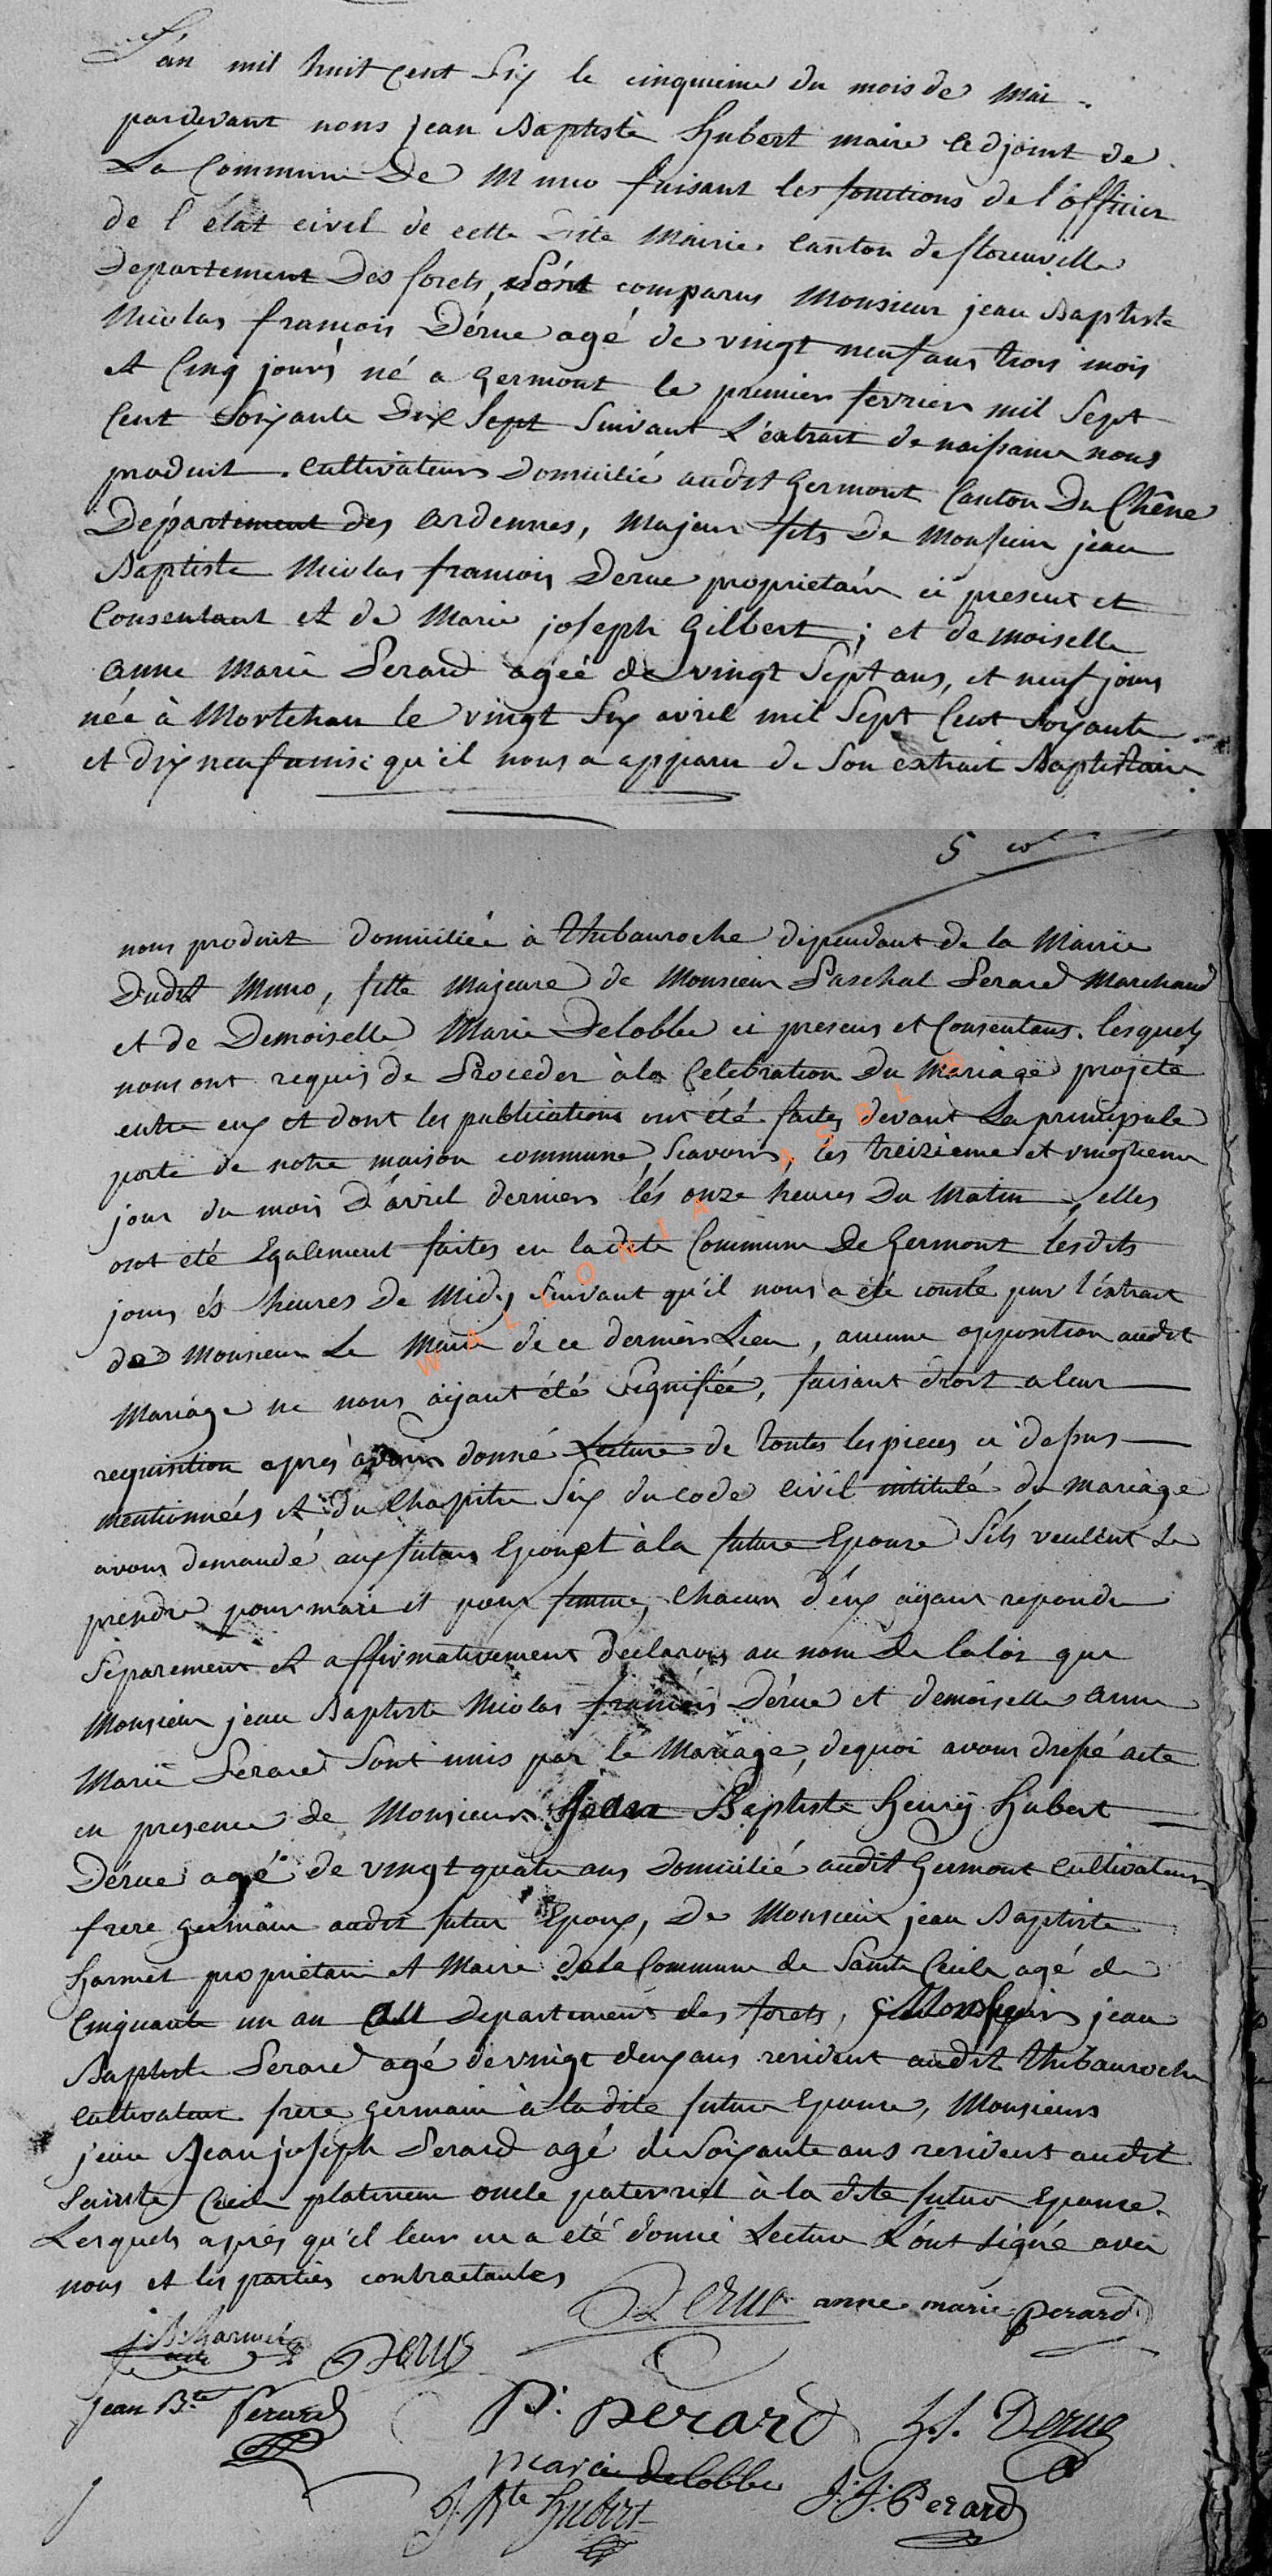 L'an mil huit Cent Six le cinquieme du mois de Mai.
pardevant nous jean Baptiste Hubert maire Adjoint de
La Commune De Muno faisant les fonctions de l'officier
de l'état civil de cette Dite Mairie. Canton de florenville
Departement Des forets, Sont comparus Monsieur jean Baptiste
Nicolas francois Dérue agé de vingt neuf ans trois mois
et Cinq jours né a Germont le premier fevrier mil Sept
Cent Soixante Dix Sept Suivant L'extrait de naissance nous
produit. Cultivateur Domicilié audit Germont Canton Du Chêne
Département des Ardennes, Majeur fils De Monsieur jean
Baptiste Nicolas francois Derue proprietaire ci present et
Consentant et de Marie joseph Gilbert; et demoiselle
Anne Marie Perard agée de vingt Sept ans, et neuf jours
née à Mortehan le vingt Six avril mil Sept Cent Soixante
et dix neuf ainsi qu'il nous a apparu de Son extrait Baptistaire
5
nous produit domiciliée à Thibauroche dependant de la Mairie
Dudit Muno, fille Majeure de Monsieur Paschal Perard Marchand
et de Demoiselle Marie Delobbe ci presens et Consentans. lesquels
nous ont requis de Proceder à la Celebration Du Mariage projeté
entre eux et dont les publications ont été faites devant La principale
porte de notre maison commune, Scavoir, les treizieme et vingtieme
jour du mois d'avril dernier lés onze heures Du Matin, elles
ont été Egalement faites en la dite Commune De Germont lesdits
jours és heures De Midy Suivant qu'il nous a été consté par l'éxtrait
de Monsieur Le Maire de ce dernier Lieu, aucune opposition audit
Mariage ne nous aÿant été Signifiée, faisant droit a leur
requisition aprés avoir donné Lecture de toutes les pieces ci dessus
mentionnées et du Chapitre Six du code Civil intitulé du mariage
avons demandé aux futurs Epoux et à la future Epouse S'ils veulent Se
prendre pour mari et pour femme, Chacun d'eux aÿant repondu
Séparement et affirmativement declarons au nom De la loi que
Monsieur jean Baptiste Nicolas francois Dérue et demoiselle Anne
Marie Perard Sont unis par le Mariage, dequoi avons dressé acte
en presence de Monsieur Jean Baptiste Henrÿ Hubert
Dérue agé de vingt quatre ans domicilié audit Germont Cultivateur
frere germain audit futur Epoux, De Monsieur jean Baptiste
Harmel proprietaire et Maire de la Commune de Sainte Cecile agé de
Cinquante un an Au departement des forets, Monsieur jean
Baptiste Perard agé de vingt deux ans resident audit Thibauroche
Cultivateur frere germain à la dite future Epouse, Monsieur
jean Jean joseph Perard agé de Soixante ans resident audit
Sainte Cecile platineur oncle paternel à la dite future Epouse.
Lesquels aprés qu'il leur en a été donné Lecture L'ont Signé avec
nous et les parties contractantes
Derue anne marie perard
J: B: Harmel Derue
Jean B.te Perard P. Perard H. J. Derue
marie delobbe
J. B.te Hubert J: J: Perard
WALLONIA ASBL ©